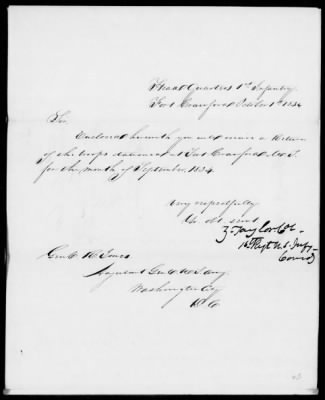 Head Quarters 1st Infantry
Fort Crawford October 1st 1834
Sir
Enclosed herewith you will receive a Return
of the troops stationed at Fort Crawford M.T.
for the month of September 1834
Very respectfully
Yr. Obt. servt
Z. Taylor Col.
1st Regt U.S. Inf.
Comdg
Genl. R. Jones
Adjutant Genl. U.S. Army
Washington City
D.C.